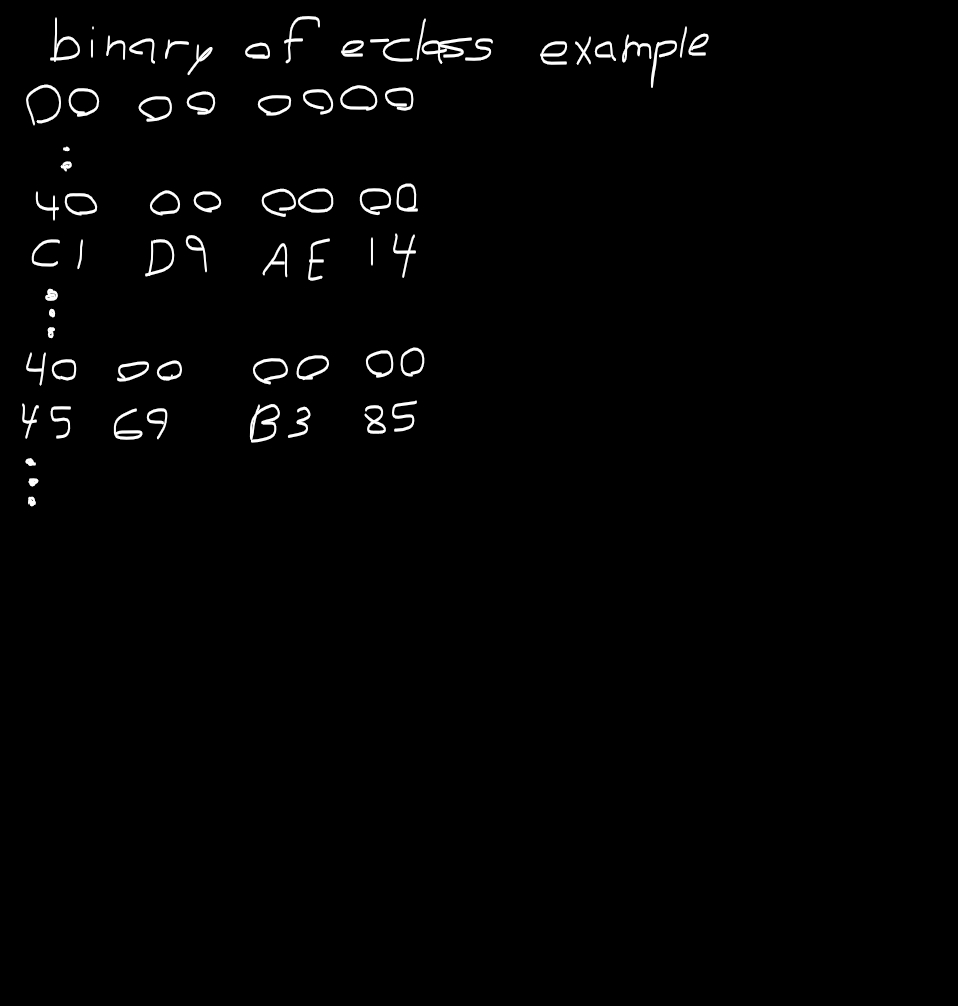 binary of e-class example
00 00 0000
:
40 00 00 00
C1 D9 AE 14
⋮
40 00 00 00
45 69 B3 85
⋮